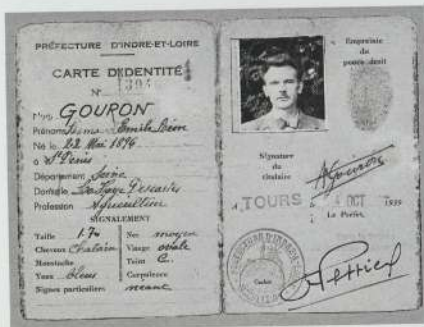 PRÉFECTURE D'INDRE-ET-LOIRE
CARTE D'IDENTITÉ
N°
Nom GOURON
Prénoms Emile Léon
Né le 22 Mai 1896
à St Denis
Département Seine
Domicile La Haye Descartes
Profession Agriculteur
SIGNALEMENT
Taille 1.70
Cheveux Chatain
Moustache
Yeux bleus
Signes particuliers néant
Nez moyen
Visage ovale
Teint C.
Corpulence
Empreinte
du
pouce droit
Signature
du
titulaire
AGouron
A TOURS OCT 1939
Le Préfet,
Cachet